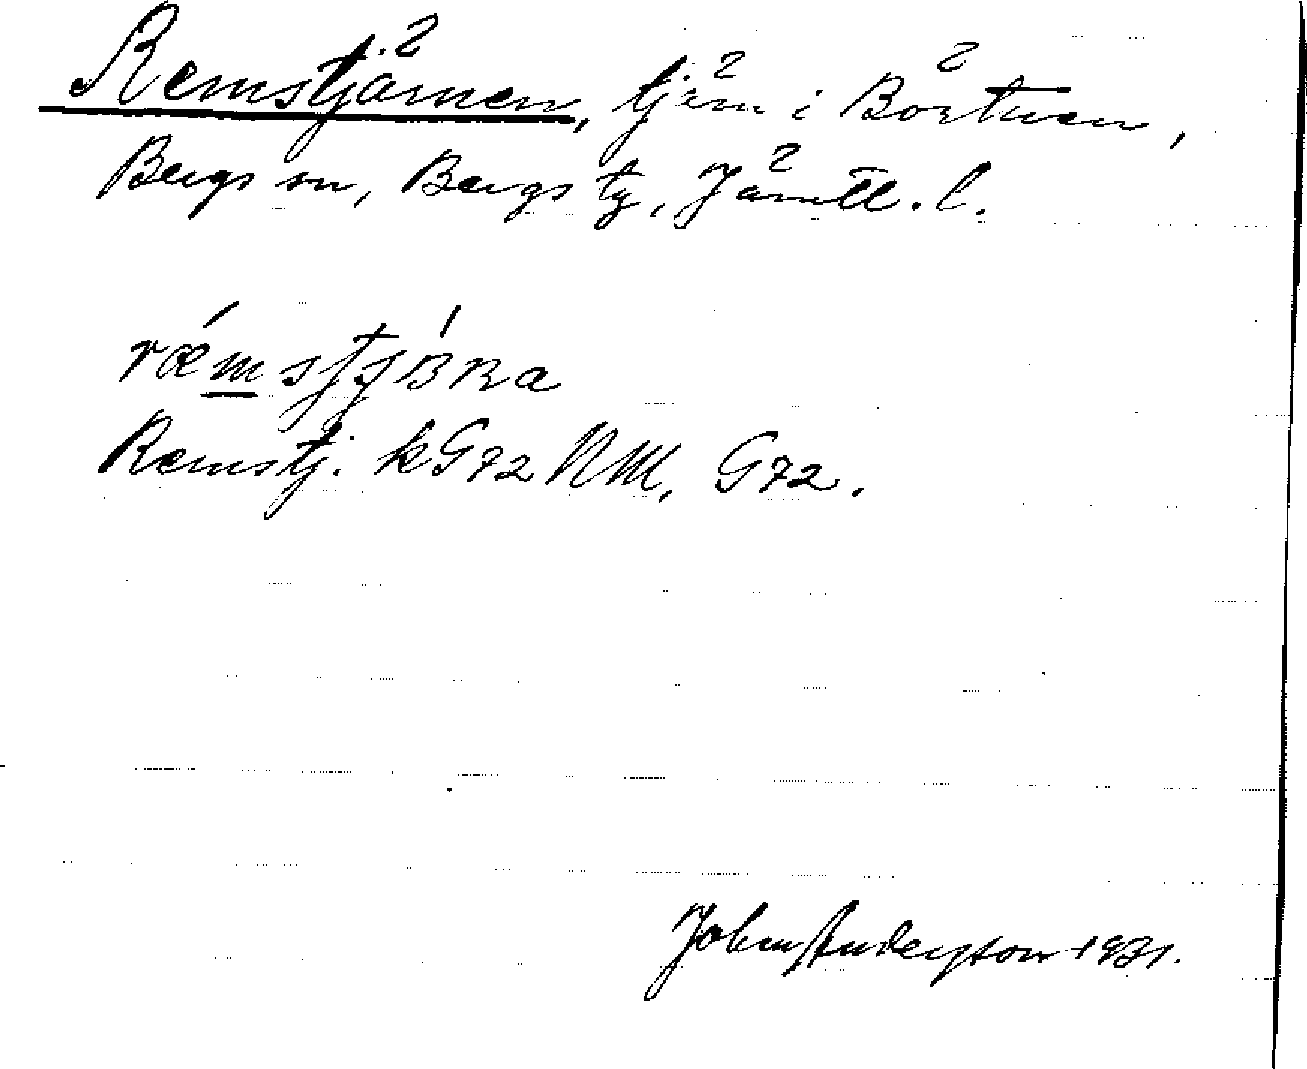 Remstjärnen, tjärn i Börtnen,
Bergs sn, Bergs tg, Jämtl. l.
Remstj. kG72 NM, G72.
John Anderson 1931.